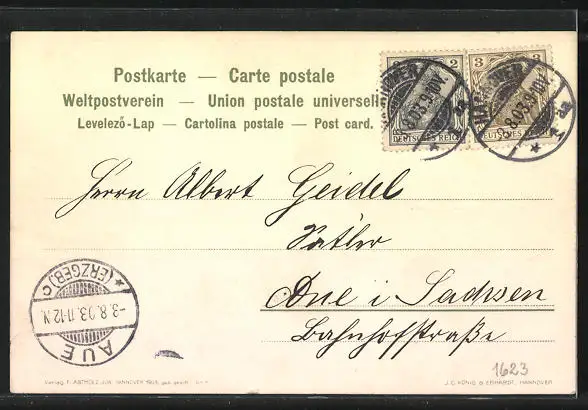 Postkarte — Carte postale
Weltpostverein — Union postale universelle
Levelező-Lap — Cartolina postale — Post card.
2 3 3
DEUTSCHES REICH DEUTSCHES REICH
HANNOVER
8.03.9-10V. 8.03.9-10V.
Herrn Albert Geidel
Sattler
Aue i Sachsen
Bahnhofstraße
AUE
-3.8.03.11-12N.
* (ERZGEB.) c
1623
Verlag F. ASTHOLZ JUN. HANNOVER 1903. ges. gesch.
J. C. KÖNIG & EBHARDT, HANNOVER